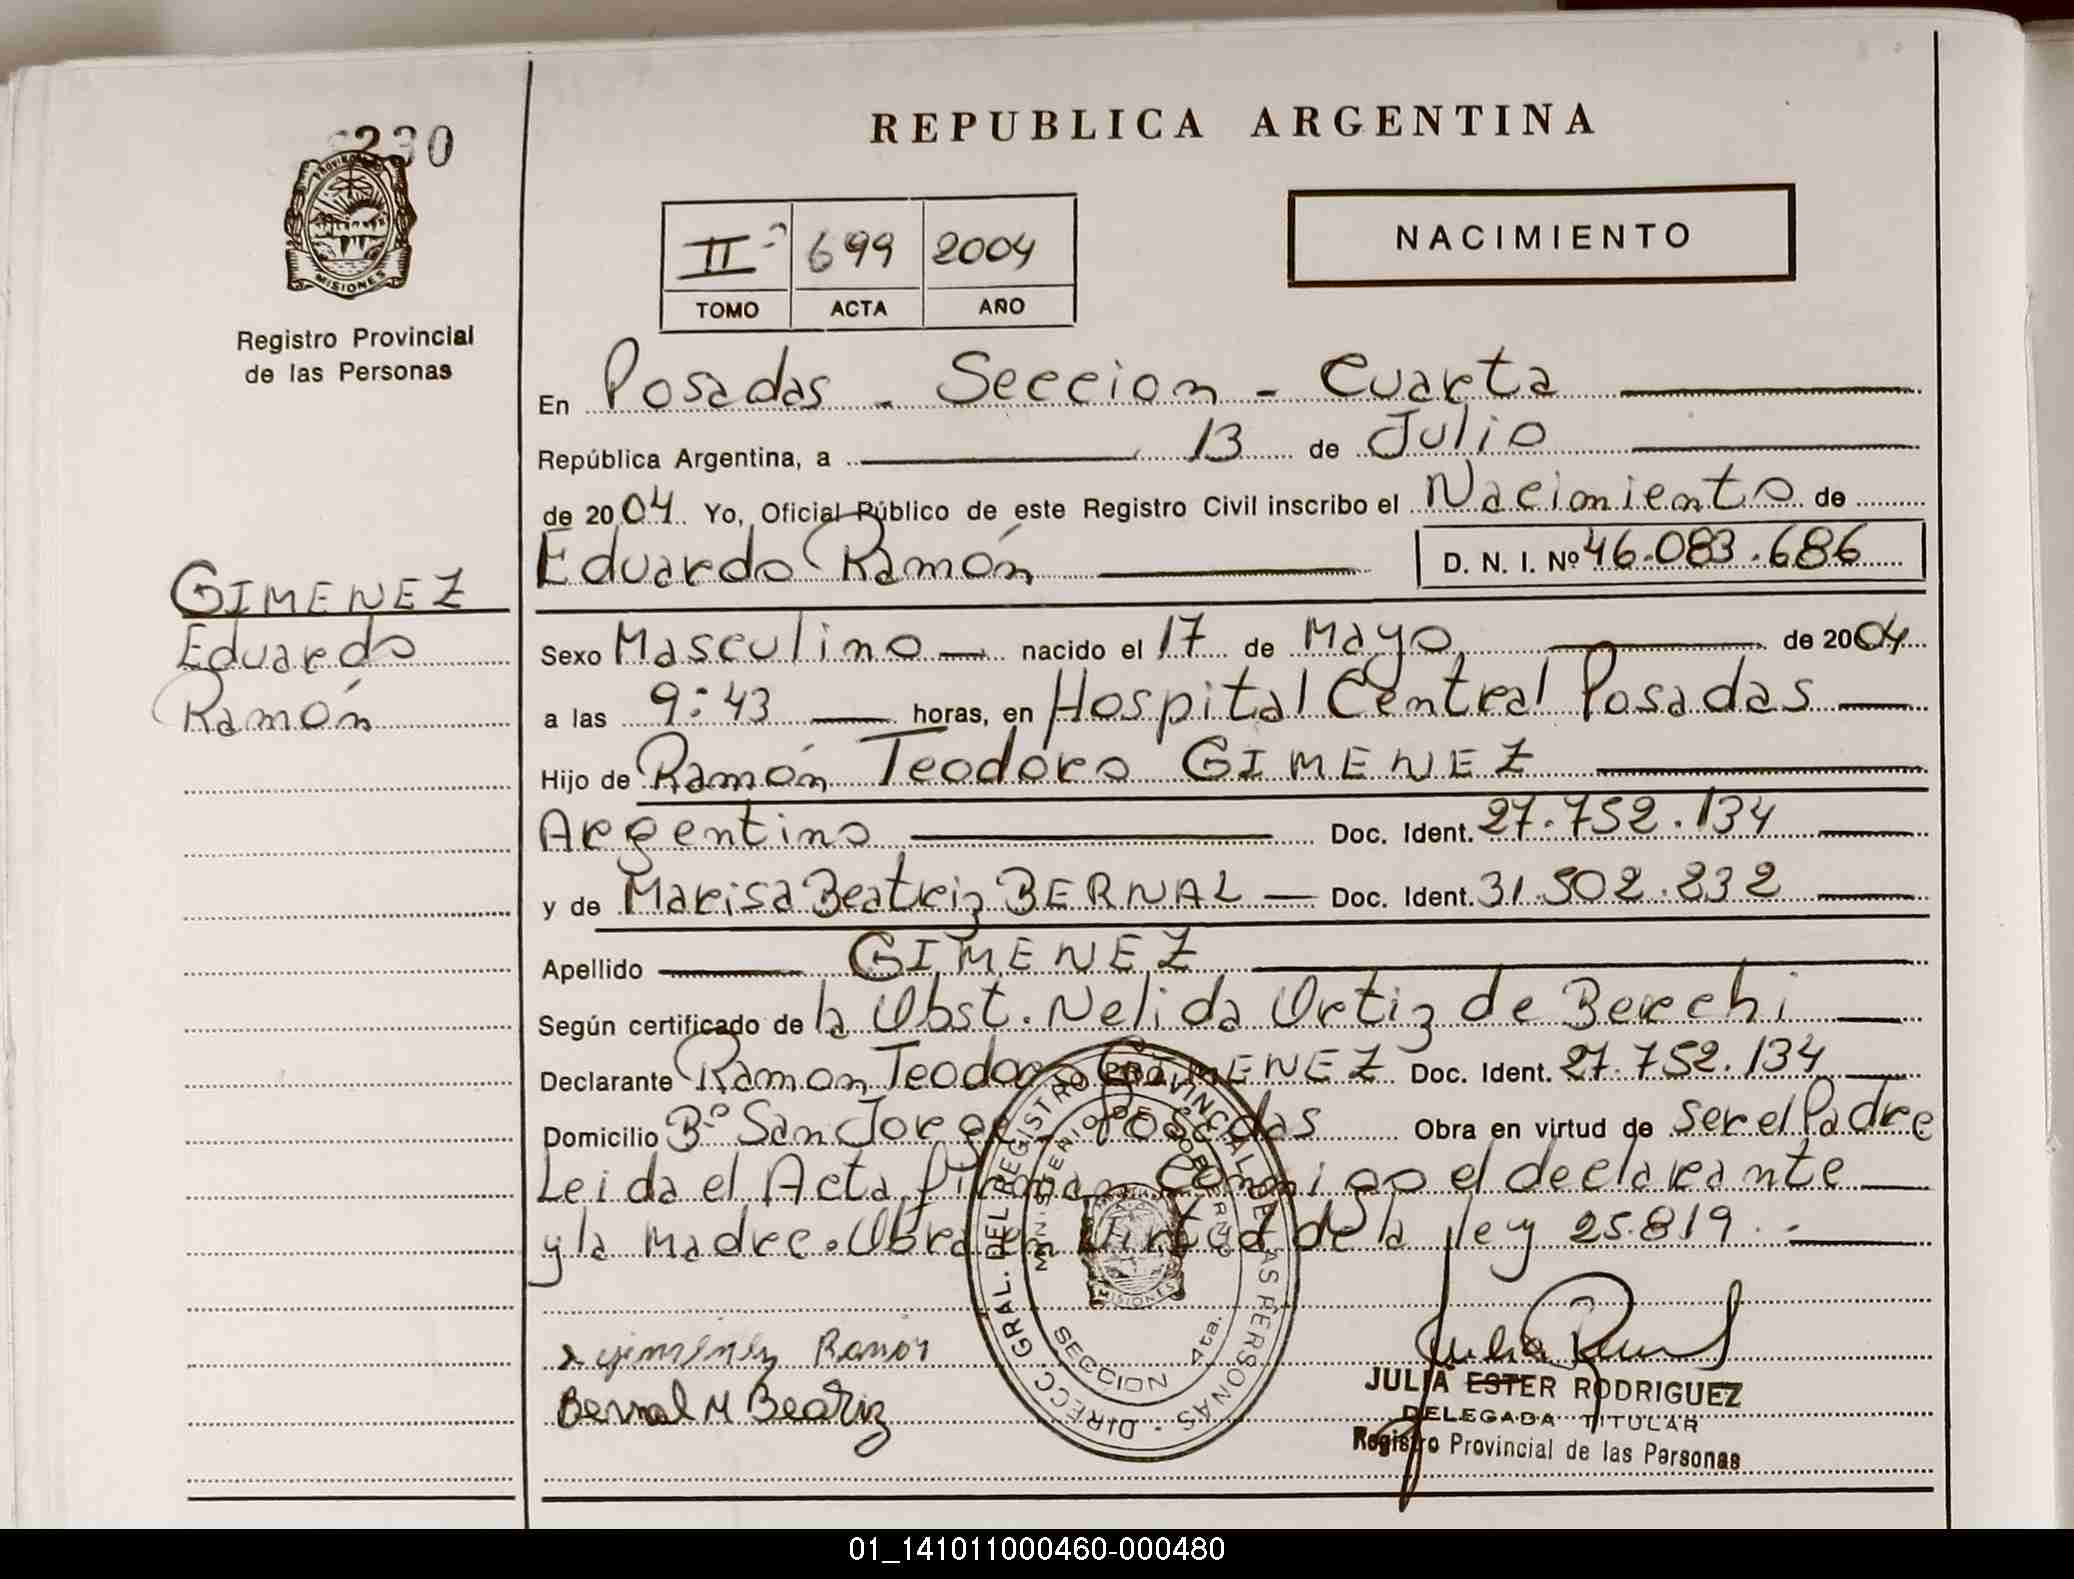 230
PROVINCIA
MISIONES
Registro Provincial
de las Personas
GIMENEZ
Eduardo
Ramón
REPUBLICA ARGENTINA
IIº 699 2004
TOMO ACTA AÑO
NACIMIENTO
En Posadas - Seccion - Cuarta
República Argentina, a 13 de Julio
de 2004 Yo, Oficial Público de este Registro Civil inscribo el Nacimiento de
Eduardo Ramón D. N. I. Nº 46.083.686
Sexo Masculino nacido el 17 de Mayo de 2004
a las 9:43 horas, en Hospital Central Posadas
Hijo de Ramón Teodoro GIMENEZ
Argentino Doc. Ident. 27.752.134
y de Marisa Beatriz BERNAL Doc. Ident. 31.502.232
Apellido GIMENEZ
Según certificado de la Obst. Nelida Ortiz de Berechi
Declarante Ramon Teodoro GIMENEZ Doc. Ident. 27.752.134
Domicilio Bº San Jorge - Posadas Obra en virtud de ser el Padre
Leida el Acta firman conmigo el declarante
y la madre. Obra en virtud de la ley 25.819.-
DIRECC. GRAL. DEL REGISTRO PROVINCIAL DE LAS PERSONAS
MINISTERIO DE GOBIERNO
MISIONES
SECCION 4ta.
x gimenez Ramon
Bernal M Beatriz
JULIA ESTER RODRIGUEZ
DELEGADA TITULAR
Registro Provincial de las Personas
01_141011000460-000480